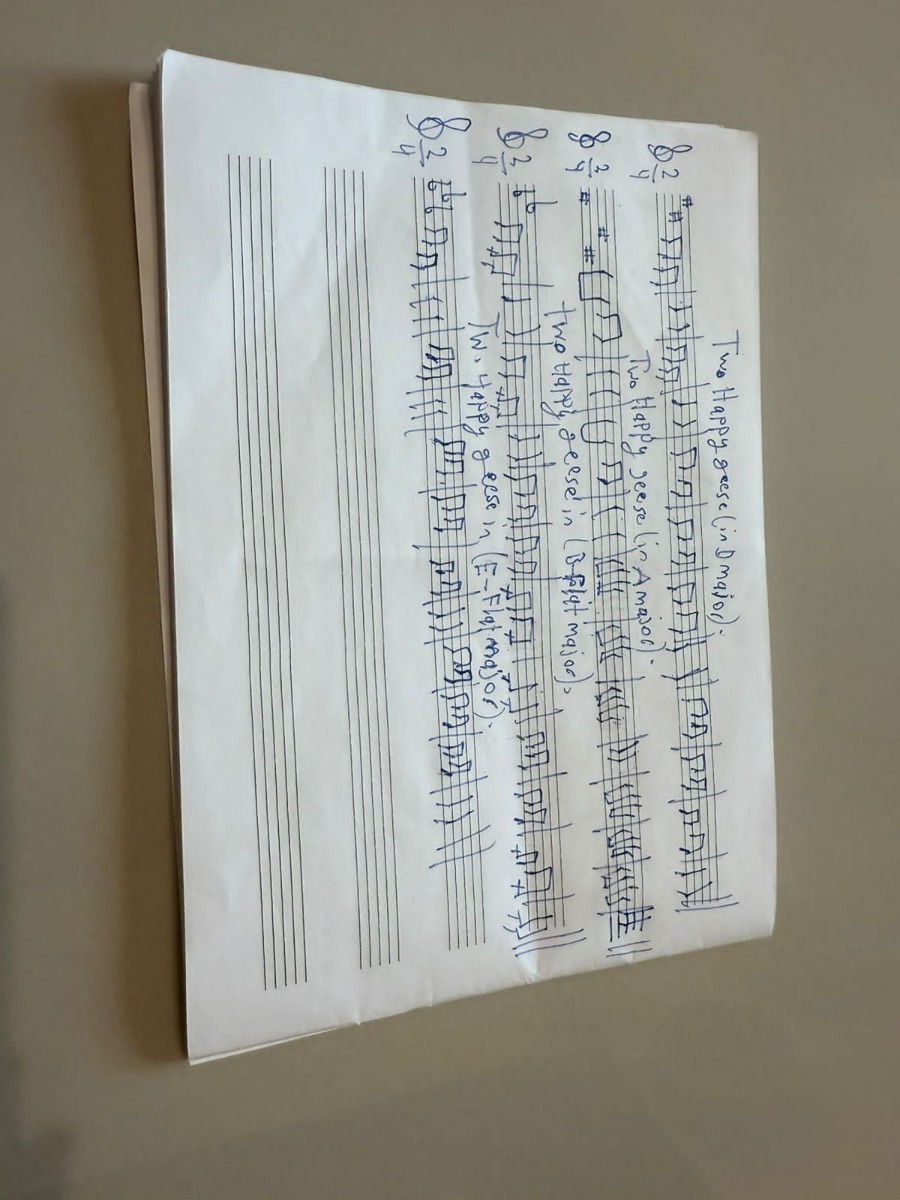 Two Happy geese (in D major).
2
4
Two Happy geese (in A major).
2
4
Two Happy geese in (B-flat major).
2
4
Two Happy geese in (E-Flat major).
2
4